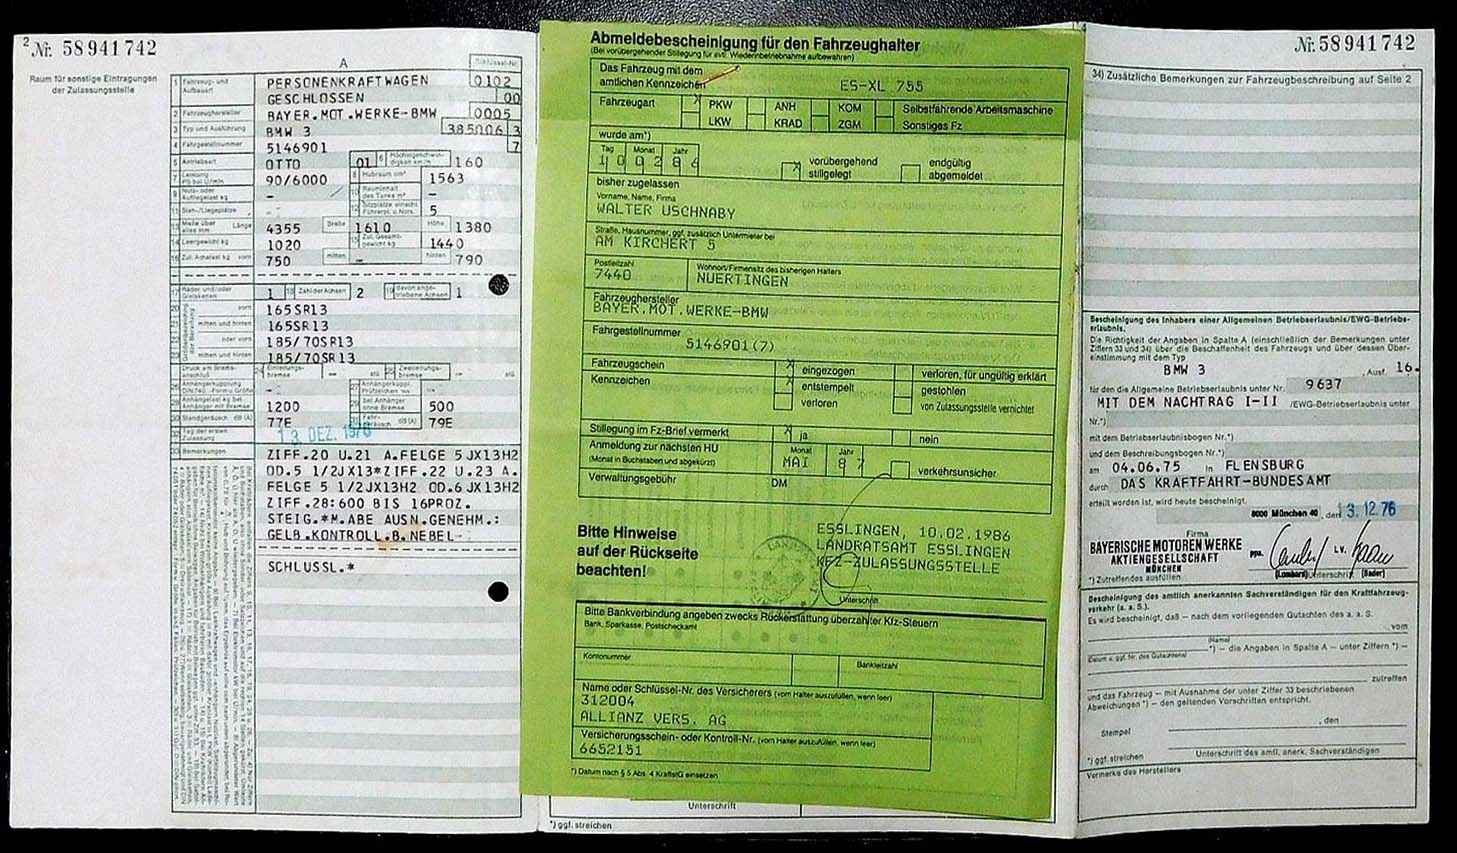 2 Nr. 58941742
Raum für sonstige Eintragungen
der Zulassungsstelle
A
Schlüssel-Nr.
1 Fahrzeug- und Aufbauart PERSONENKRAFTWAGEN 0102
GESCHLOSSEN 00
2 Fahrzeughersteller BAYER.MOT.WERKE-BMW 0005
3 Typ und Ausführung BMW 3 385006 3
4 Fahrgestellnummer 5146901 7
5 Antriebsart OTTO 01 6 Höchstgeschwindigkeit km/h 160
7 Leistung 90/6000 8 Hubraum cm³ 1563
9 Nutz- oder Aufliegelast kg – 10 Rauminhalt des Tanks m³ –
11 Steh-/Liegeplätze – 12 Sitzplätze einschl. Führerpl. u. Nots. 5
13 Maße über alles mm Länge 4355 Breite 1610 Höhe 1380
14 Leergewicht kg 1020 15 Zul. Gesamtgewicht kg 1440
16 Zul. Achslast kg vorn 750 mitten – hinten 790
17 Räder und/oder Gleisketten 1 18 Zahl der Achsen 2 19 davon angetriebene Achsen 1
20 vorn 165SR13
21 mitten und hinten 165SR13
22 oder vorn 185/70SR13
23 mitten und hinten 185/70SR13
1200 500
30 Standgeräusch dB (A) 77E 79E
Tag der ersten Zulassung 13. DEZ. 1976
33 Bemerkungen ZIFF.20 U.21 A.FELGE 5JX13H2
OD.5 1/2JX13*ZIFF.22 U.23 A.
FELGE 5 1/2JX13H2 OD.6JX13H2
ZIFF.28:600 BIS 16PROZ.
STEIG.*M.ABE AUSN.GENEHM.:
GELB.KONTROLL.B.NEBEL-
SCHLUSSL.*
Abmeldebescheinigung für den Fahrzeughalter
(Bei vorübergehender Stillegung für evtl. Wiederinbetriebnahme aufbewahren)
Das Fahrzeug mit dem
amtlichen Kennzeichen ES-XL 755
Fahrzeugart X PKW ANH KOM Selbstfahrende Arbeitsmaschine
LKW KRAD ZGM Sonstiges Fz
wurde am*)
Tag Monat Jahr
10 02 86 X vorübergehend stillgelegt endgültig abgemeldet
bisher zugelassen
Vorname, Name, Firma
WALTER USCHNABY
Straße, Hausnummer, ggf. zusätzlich Untermieter bei
AM KIRCHERT 5
Postleitzahl Wohnort/Firmensitz des bisherigen Halters
7440 NUERTINGEN
Fahrzeughersteller
BAYER.MOT.WERKE-BMW
Fahrgestellnummer
5146901(7)
Fahrzeugschein X eingezogen verloren, für ungültig erklärt
Kennzeichen X entstempelt gestohlen
verloren von Zulassungsstelle vernichtet
Stillegung im Fz-Brief vermerkt X ja nein
Anmeldung zur nächsten HU Monat Jahr
(Monat in Buchstaben und abgekürzt) MAI 87 verkehrsunsicher
Verwaltungsgebühr DM
Bitte Hinweise
auf der Rückseite
beachten!
ESSLINGEN, 10.02.1986
LANDRATSAMT ESSLINGEN
KFZ-ZULASSUNGSSTELLE
Unterschrift
Bitte Bankverbindung angeben zwecks Rückerstattung überzahlter Kfz-Steuern
Bank, Sparkasse, Postscheckamt
Kontonummer Bankleitzahl
Name oder Schlüssel-Nr. des Versicherers (vom Halter auszufüllen, wenn leer)
312004
ALLIANZ VERS. AG
Versicherungsschein- oder Kontroll-Nr. (vom Halter auszufüllen, wenn leer)
6652151
*) Datum nach § 5 Abs. 4 KraftStG einsetzen
Unterschrift
*) ggf. streichen
Nr. 58941742
34) Zusätzliche Bemerkungen zur Fahrzeugbeschreibung auf Seite 2
Bescheinigung des Inhabers einer Allgemeinen Betriebserlaubnis/EWG-Betriebs-
erlaubnis.
Die Richtigkeit der Angaben in Spalte A (einschließlich der Bemerkungen unter
Ziffern 33 und 34) über die Beschaffenheit des Fahrzeugs und über dessen Über-
einstimmung mit dem Typ
BMW 3 , Ausf. 16.
für den die Allgemeine Betriebserlaubnis unter Nr. 9637
MIT DEM NACHTRAG I-II /EWG-Betriebserlaubnis unter
Nr.*)
mit dem Betriebserlaubnisbogen Nr.*)
und dem Beschreibungsbogen Nr.*)
am 04.06.75 in FLENSBURG
durch DAS KRAFTFAHRT-BUNDESAMT
erteilt worden ist, wird heute bescheinigt.
8000 München 40, den 13.12.76
Firma
BAYERISCHE MOTOREN WERKE
AKTIENGESELLSCHAFT
MÜNCHEN
ppa. i.V.
*) Zutreffendes ausfüllen. (Lombard) Unterschrift (Bader)
Bescheinigung des amtlich anerkannten Sachverständigen für den Kraftfahrzeug-
verkehr (a. a. S.).
Es wird bescheinigt, daß – nach dem vorliegenden Gutachten des a. a. S.
vom
(Name)
*) – die Angaben in Spalte A – unter Ziffern *) –
(Datum u. ggf. Nr. des Gutachtens)
zutreffen
und das Fahrzeug – mit Ausnahme der unter Ziffer 33 beschriebenen
Abweichungen *) – den geltenden Vorschriften entspricht.
, den
Stempel
*) ggf. streichen Unterschrift des amtl. anerk. Sachverständigen
Vermerke des Herstellers